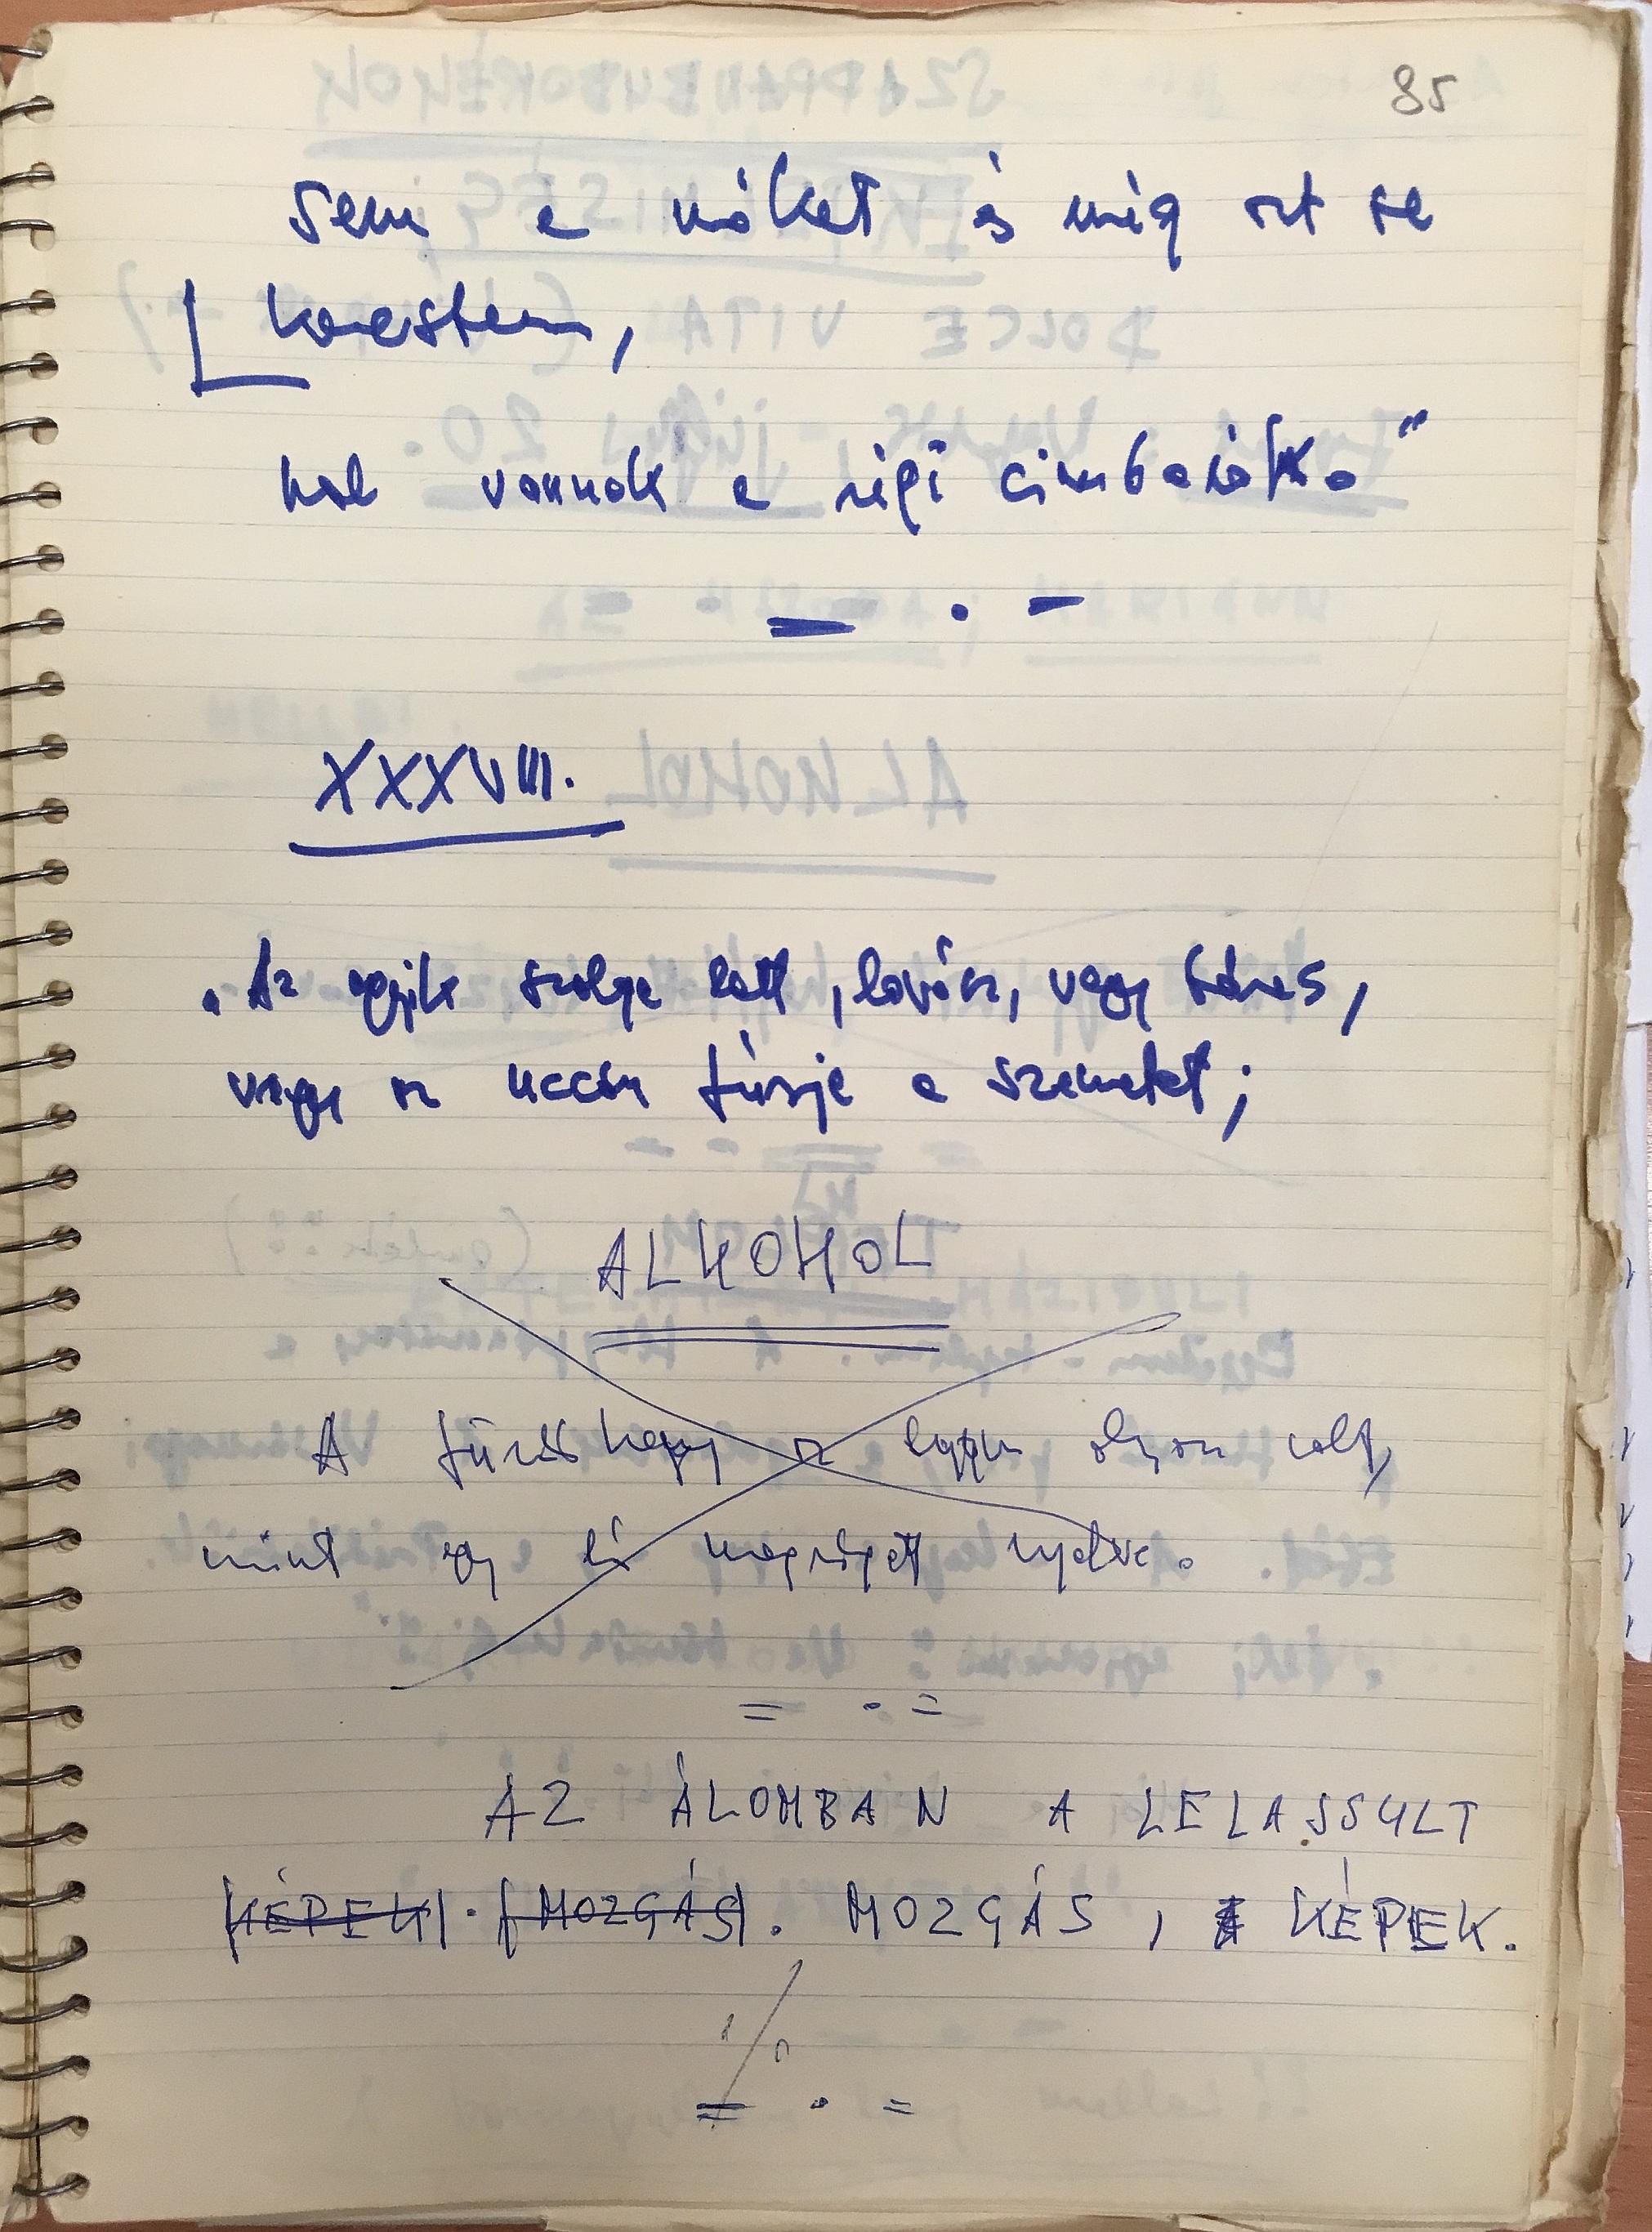 85
sem a nőket és még azt se
kerestem,
hol vannak a régi cimborák."
XXXVIII.
"Az egyik szolga lett, lovász, vagy
vagy az uccán túrja a szemetet;
ALKOHOL
A hegy az olyan volt,
mint egy ló nyelve.
AZ ÁLOMBAN A LELASSULT
KÉPEK. MOZGÁS. MOZGÁS, KÉPEK.